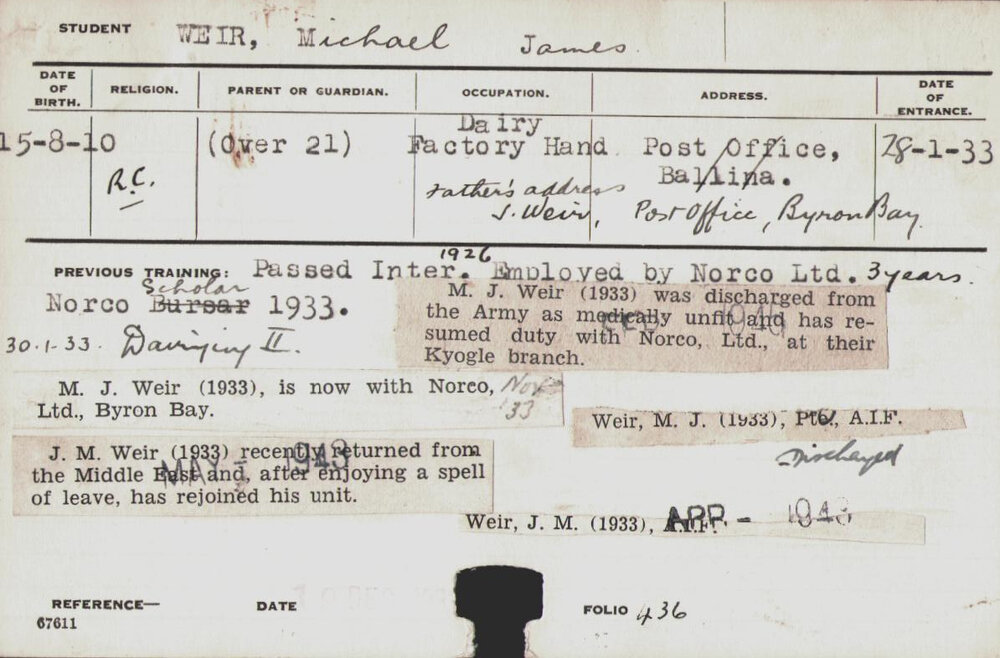 STUDENT WEIR, Michael James.
DATE OF BIRTH. RELIGION. PARENT OR GUARDIAN. OCCUPATION. ADDRESS. DATE OF ENTRANCE.
Dairy
15-8-10 (Over 21) Factory Hand Post Office, 28-1-33
R.C. Ballina.
Father's address
J. Weir, Post Office, Byron Bay.
1926
PREVIOUS TRAINING: Passed Inter. Employed by Norco Ltd. 3 years.
Scholar
Norco Bursar 1933.
M. J. Weir (1933) was discharged from
the Army as medically unfit and has re-
sumed duty with Norco, Ltd., at their
Kyogle branch.
30.1.33. Dairying II.
M. J. Weir (1933), is now with Norco,
Ltd., Byron Bay.
Nov '33
Weir, M. J. (1933), Pte., A.I.F.
Discharged
J. M. Weir (1933) recently returned from
the Middle East and, after enjoying a spell
of leave, has rejoined his unit.
MAY - 1943
Weir, J. M. (1933), A.I.F.
APR - 1943
REFERENCE— DATE FOLIO 436
67611